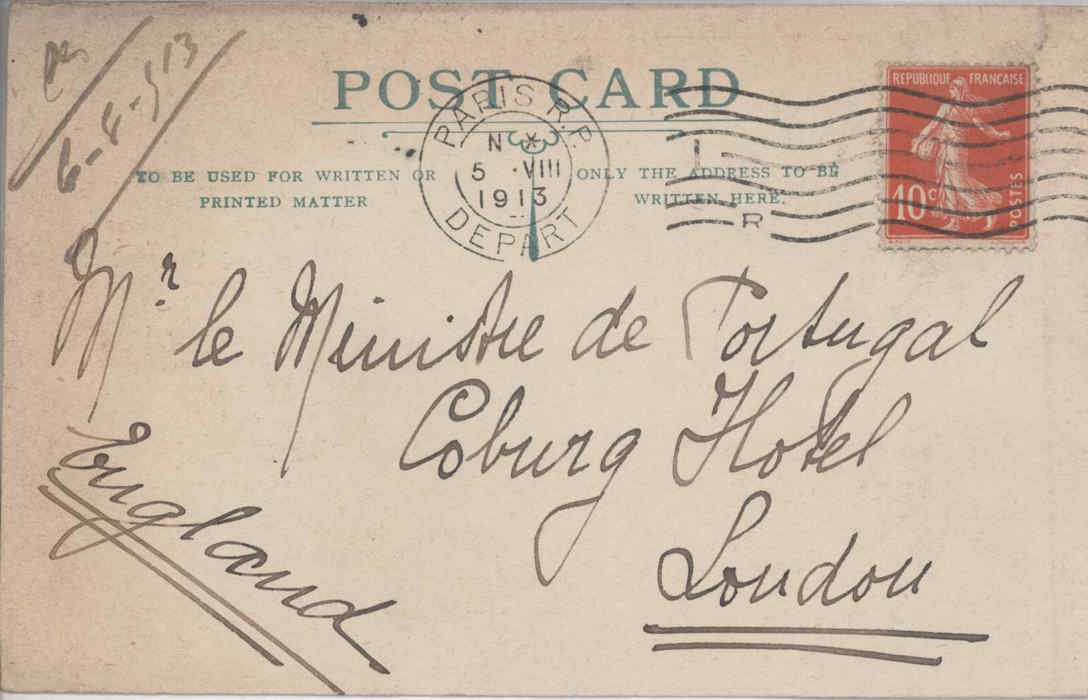 6-8-913
POST CARD
TO BE USED FOR WRITTEN OR
PRINTED MATTER
ONLY THE ADDRESS TO BE
WRITTEN HERE.
PARIS R.P.
N *
5 · VIII
1913
DEPART
R
REPUBLIQUE FRANÇAISE
10 c
POSTES
Mr le Ministre de Portugal
Coburg Hotel
London
England